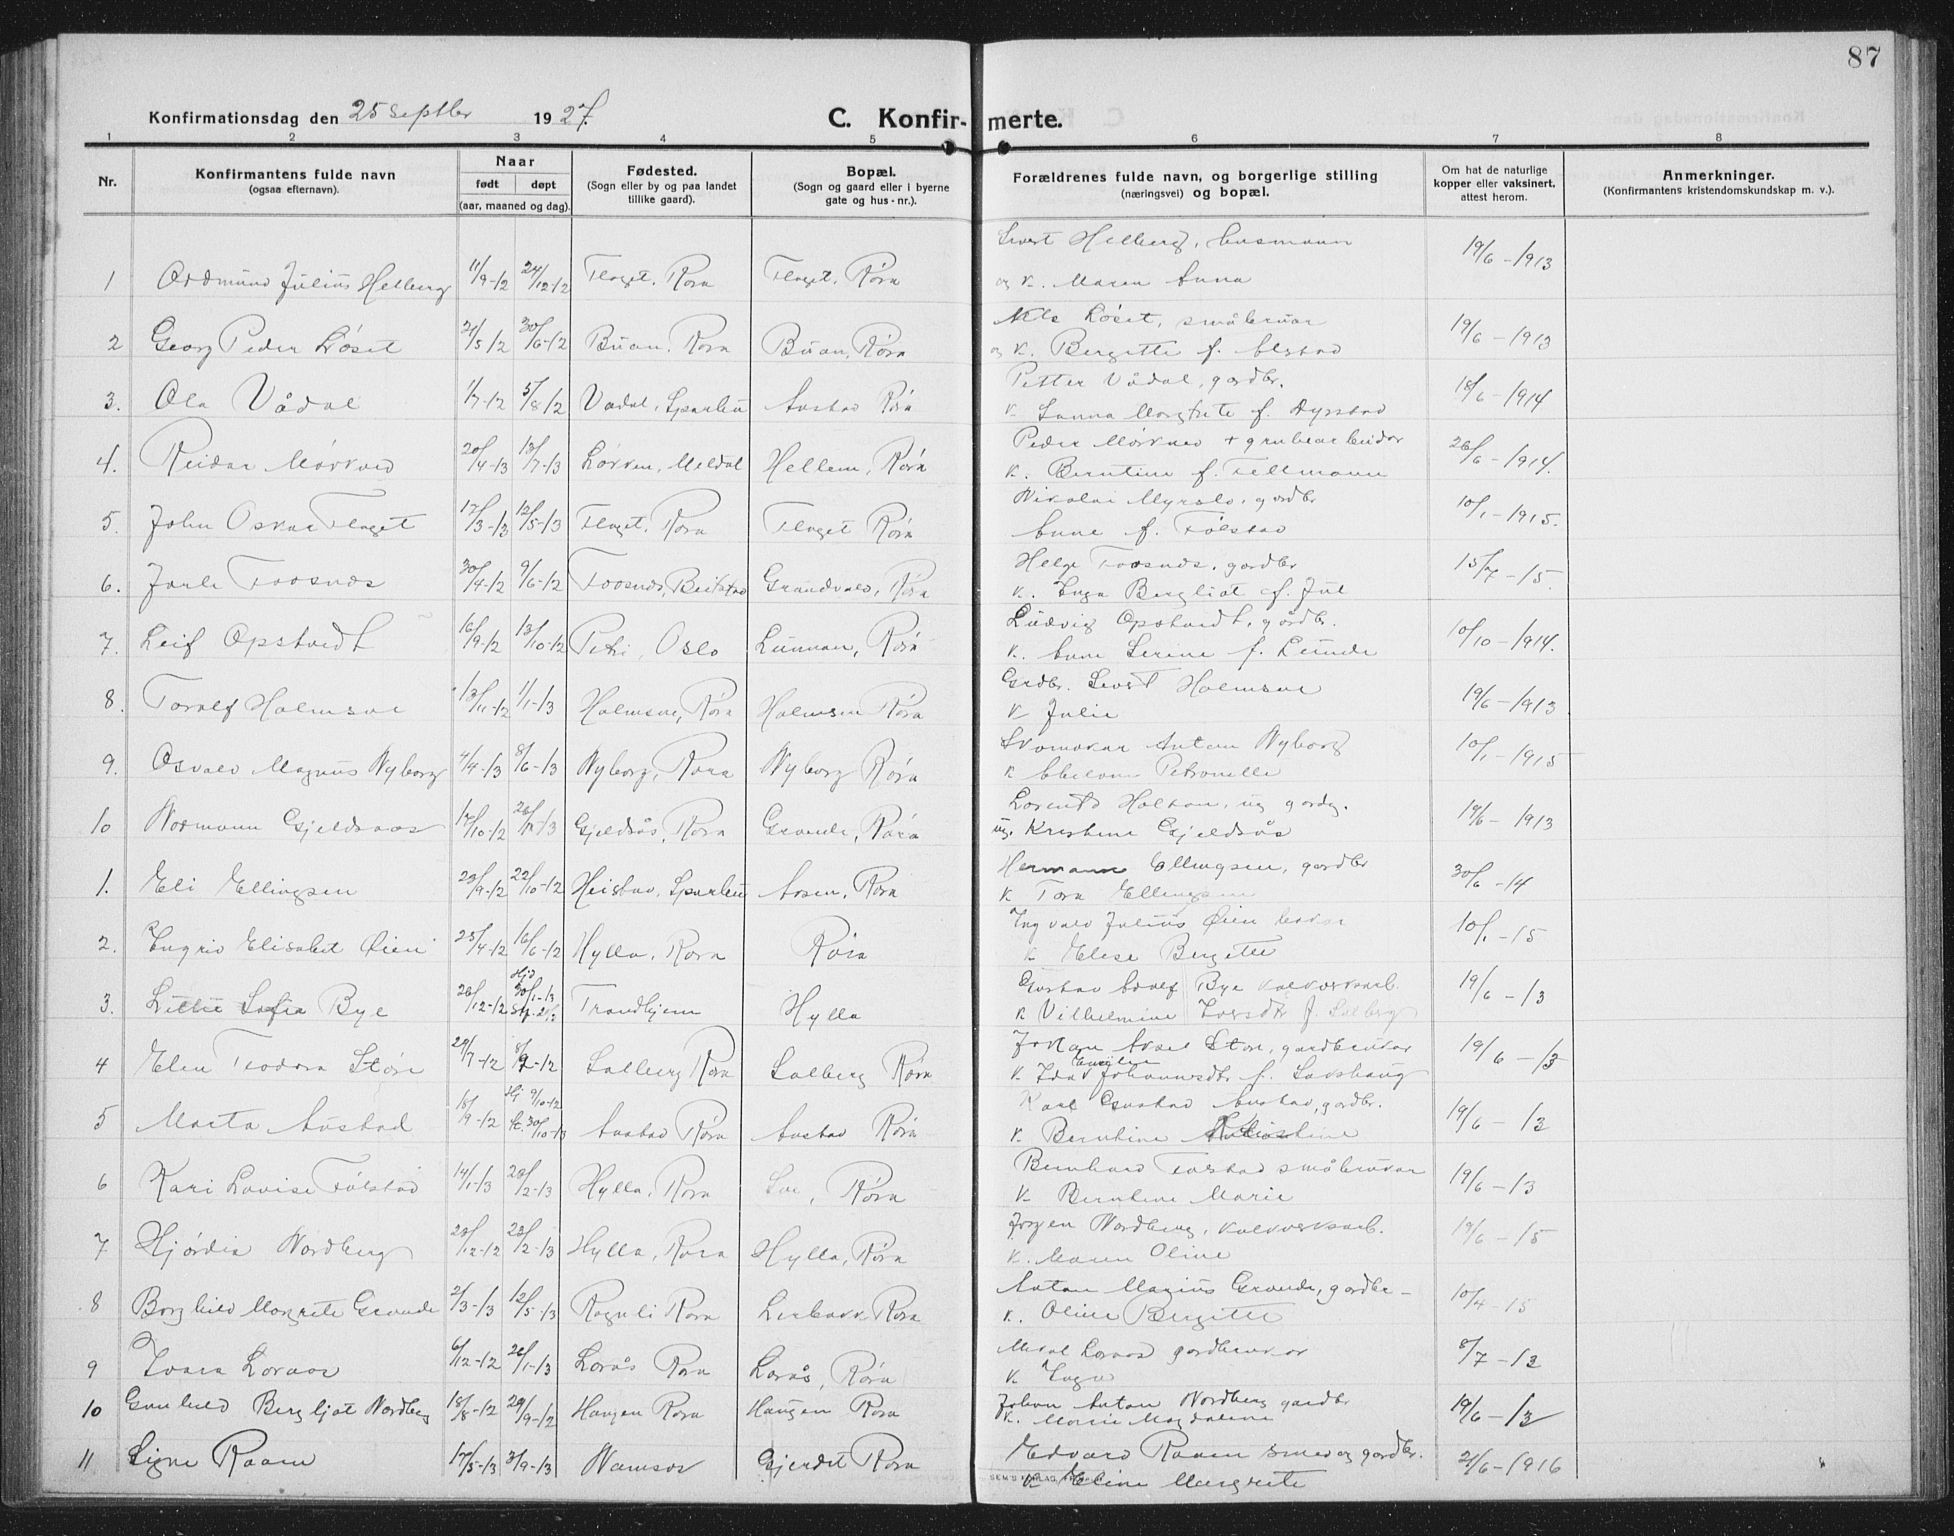 87
Konfirmationsdag den 25 Septbr 1927.
C. Konfirmerte.
1 2 3 4 5 6 7 8
Nr.
Konfirmantens fulde navn
(ogsaa efternavn).
Naar
født døpt
(aar, maaned og dag).
Fødested.
(Sogn eller by og paa landet
tillike gaard).
Bopæl.
(Sogn og gaard eller i byerne
gate og hus-nr.).
Forældrenes fulde navn, og borgerlige stilling
(næringsvei) og bopæl.
Om hat de naturlige
kopper eller vaksinert,
attest herom.
Anmerkninger.
(Konfirmantens kristendomskundskap m. v.).
Sivert Helberg, husmann
1 Oddmund Julius Helberg 11/9-12 24/12-12 Flaget. Røra Flaget. Røra 19/6-1913
og k. Maren Anna
Nils Löset, småbruar
2 Georg Peder Löset 21/5 12 30/6-12 Buan. Røra Buan, Røra 19/6-1913
og k. Bergitte f. Alstad
Petter Vådal, gardbr.
3. Ola Vådal 1/7-12 5/8-12 Vådal, Sparbu Austad Røra 18/6-1914
k. Sanna Margrete f. Dyrstad
Peder Mörkved + grubearbeider
4. Reidar Mörkved 20/4-13 13/7-13 Lökken, Meldal Hellem, Røra 26/6-1914.
k. Berntine f. Fellmann
Nikolai Myrslo, gardbr
5. John Oskar Flaget 17/3-13 12/5-13 Flaget. Røra Flaget Røra 10/1-1915.
Anne f. Fölstad
Helge Foosnæs, gardbr
6. Jarle Foosnæs 30/4-12 9/6-12 Foosnæs, Beitstad Grandvald, Røra 15/7-15.
k. Inga Bergliot f. Jul
Ludvig Opstvedt, gårdbr.
7. Leif Opstvedt 16/9-12 13/10-12 Petri, Oslo Lunnan, Røra 10/10-1914.
k. Anne Serine f. Lunde
Grdbr. Sivert Holmsve
8. Toralf Holmsve 13/11-12 1/1-13 Holmsve, Røra Holmsve Røra 19/6-1913
k Julie
Skomaker Anton Nyborg
9. Osvald Magnus Nyborg 4/4-13 8/6-13 Nyborg, Røra Nyborg Røra 10/1-1915
k Petronelle
Lorents Holtan, ug gardg.
10 Normann Gjeldsaas 17/10-12 26/1-13 Gjeldsås, Røra Grande, Røra 19/6-1913
ug. Kristine Gjeldsås
Hermann Ellingsen, gardbr
1. Eli Ellingsen 23/9-12 22/10-12 Heistad, Sparbu Aasen, Røra 30/6-14
k Tora Ellingsen
Ingvald Julius Øien
2. Ingrid Elisabet Øien 25/4-12 16/6-12 Hylla, Røra Røra 10/1-15
k Elise Bergitte
Gustav Adolf Bye kalkverksarb.
3. Lillie Sofia Bye 26/12-12 Hjd 30/1-13 Trondhjem Hylla 19/6-13
k Vilhelmine f. Salberg
Johan Aksel Störe, gardbruker
4 Elen Teodora Störe 29/7-12 8/9-12 Salberg Røra Salberg Røra 19/6-13
k. Ida Emilie Johannesdtr f. Saxhaug
Karl Gustav Austad, gardbr.
5 Marta Austad 18/9-12 Hj 9/10-12 St. 30/10-13 Austad Røra Austad Røra 19/6-13
k. Berntine Kristine
Bernhard Fölstad småbruker
6 Kari Lovise Fölstad 14/1-13 23/2-13 Hylla, Røra Røra 19/6-13
k. Berntine Marie
Jörgen Nordberg, kalkverksarb.
7 Hjørdis Nordberg 29/12-12 23/2-13 Hylla, Røra Hylla, Røra 19/6-15
k. Maren Oline
Anton Marius Grande, gardbr-
8 Borghild Margrete Grande 2/3-13 12/5-13 Raguli Røra Lerbakk Røra 10/4-15
k. Oline Bergitte
Loraas gardbruker
9 Ivara Loraas 6/12-12 26/1-13 Lorås Røra Lorås, Røra 8/7-13
k. Inga
Johan Anton Nordberg gardbr
10 Gunhild Bergljot Nordberg 18/8-12 29/9-12 Haugen Røra Haugen Røra 19/6-13
k. Marie Magdalene
Edvard Raaen smed og gardbr.
11 Signe Raaen 17/5-13 3/9-13 Namsos Gjerdet Røra 21/6-1916
k Eline Margrete